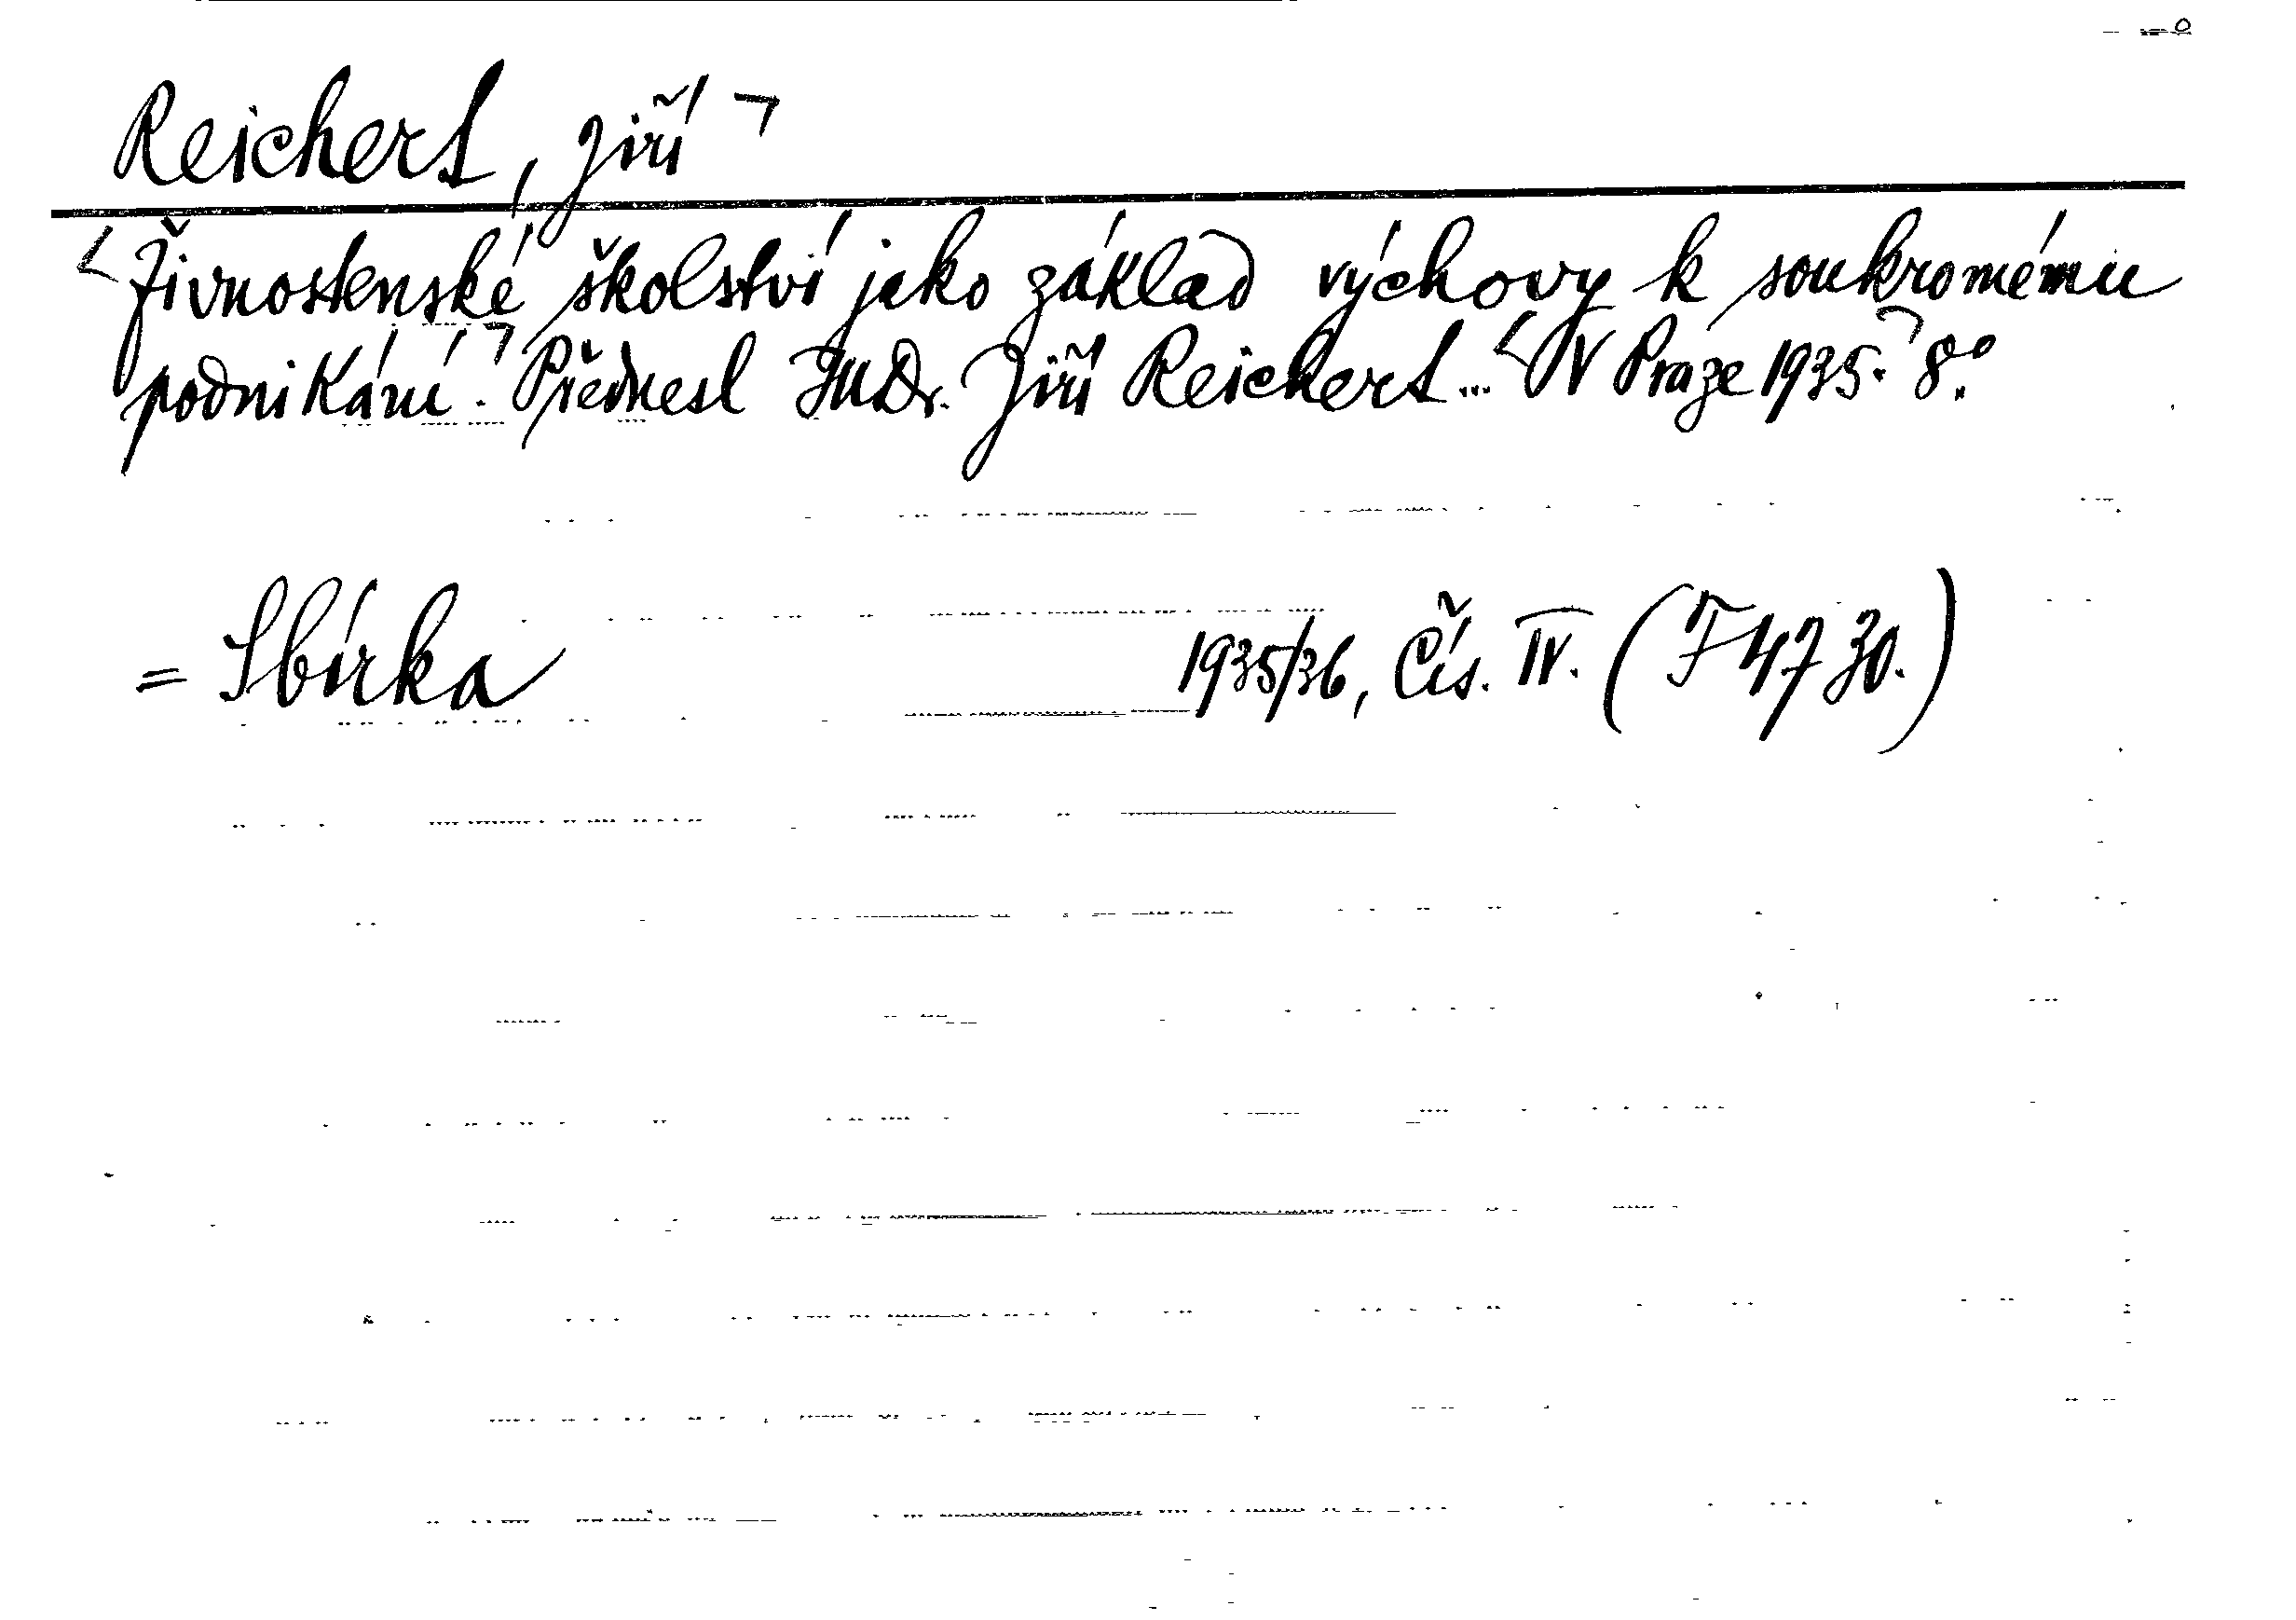 Reichert, Jiří ¬
Živnostenské školství jako základ výchovy k soukromému
podnikání. Přednesl JUDr. Jiří Reichert... V Praze 1935. 8.°
= Sbírka 1935/36, Čís. IV. (F 4730.)